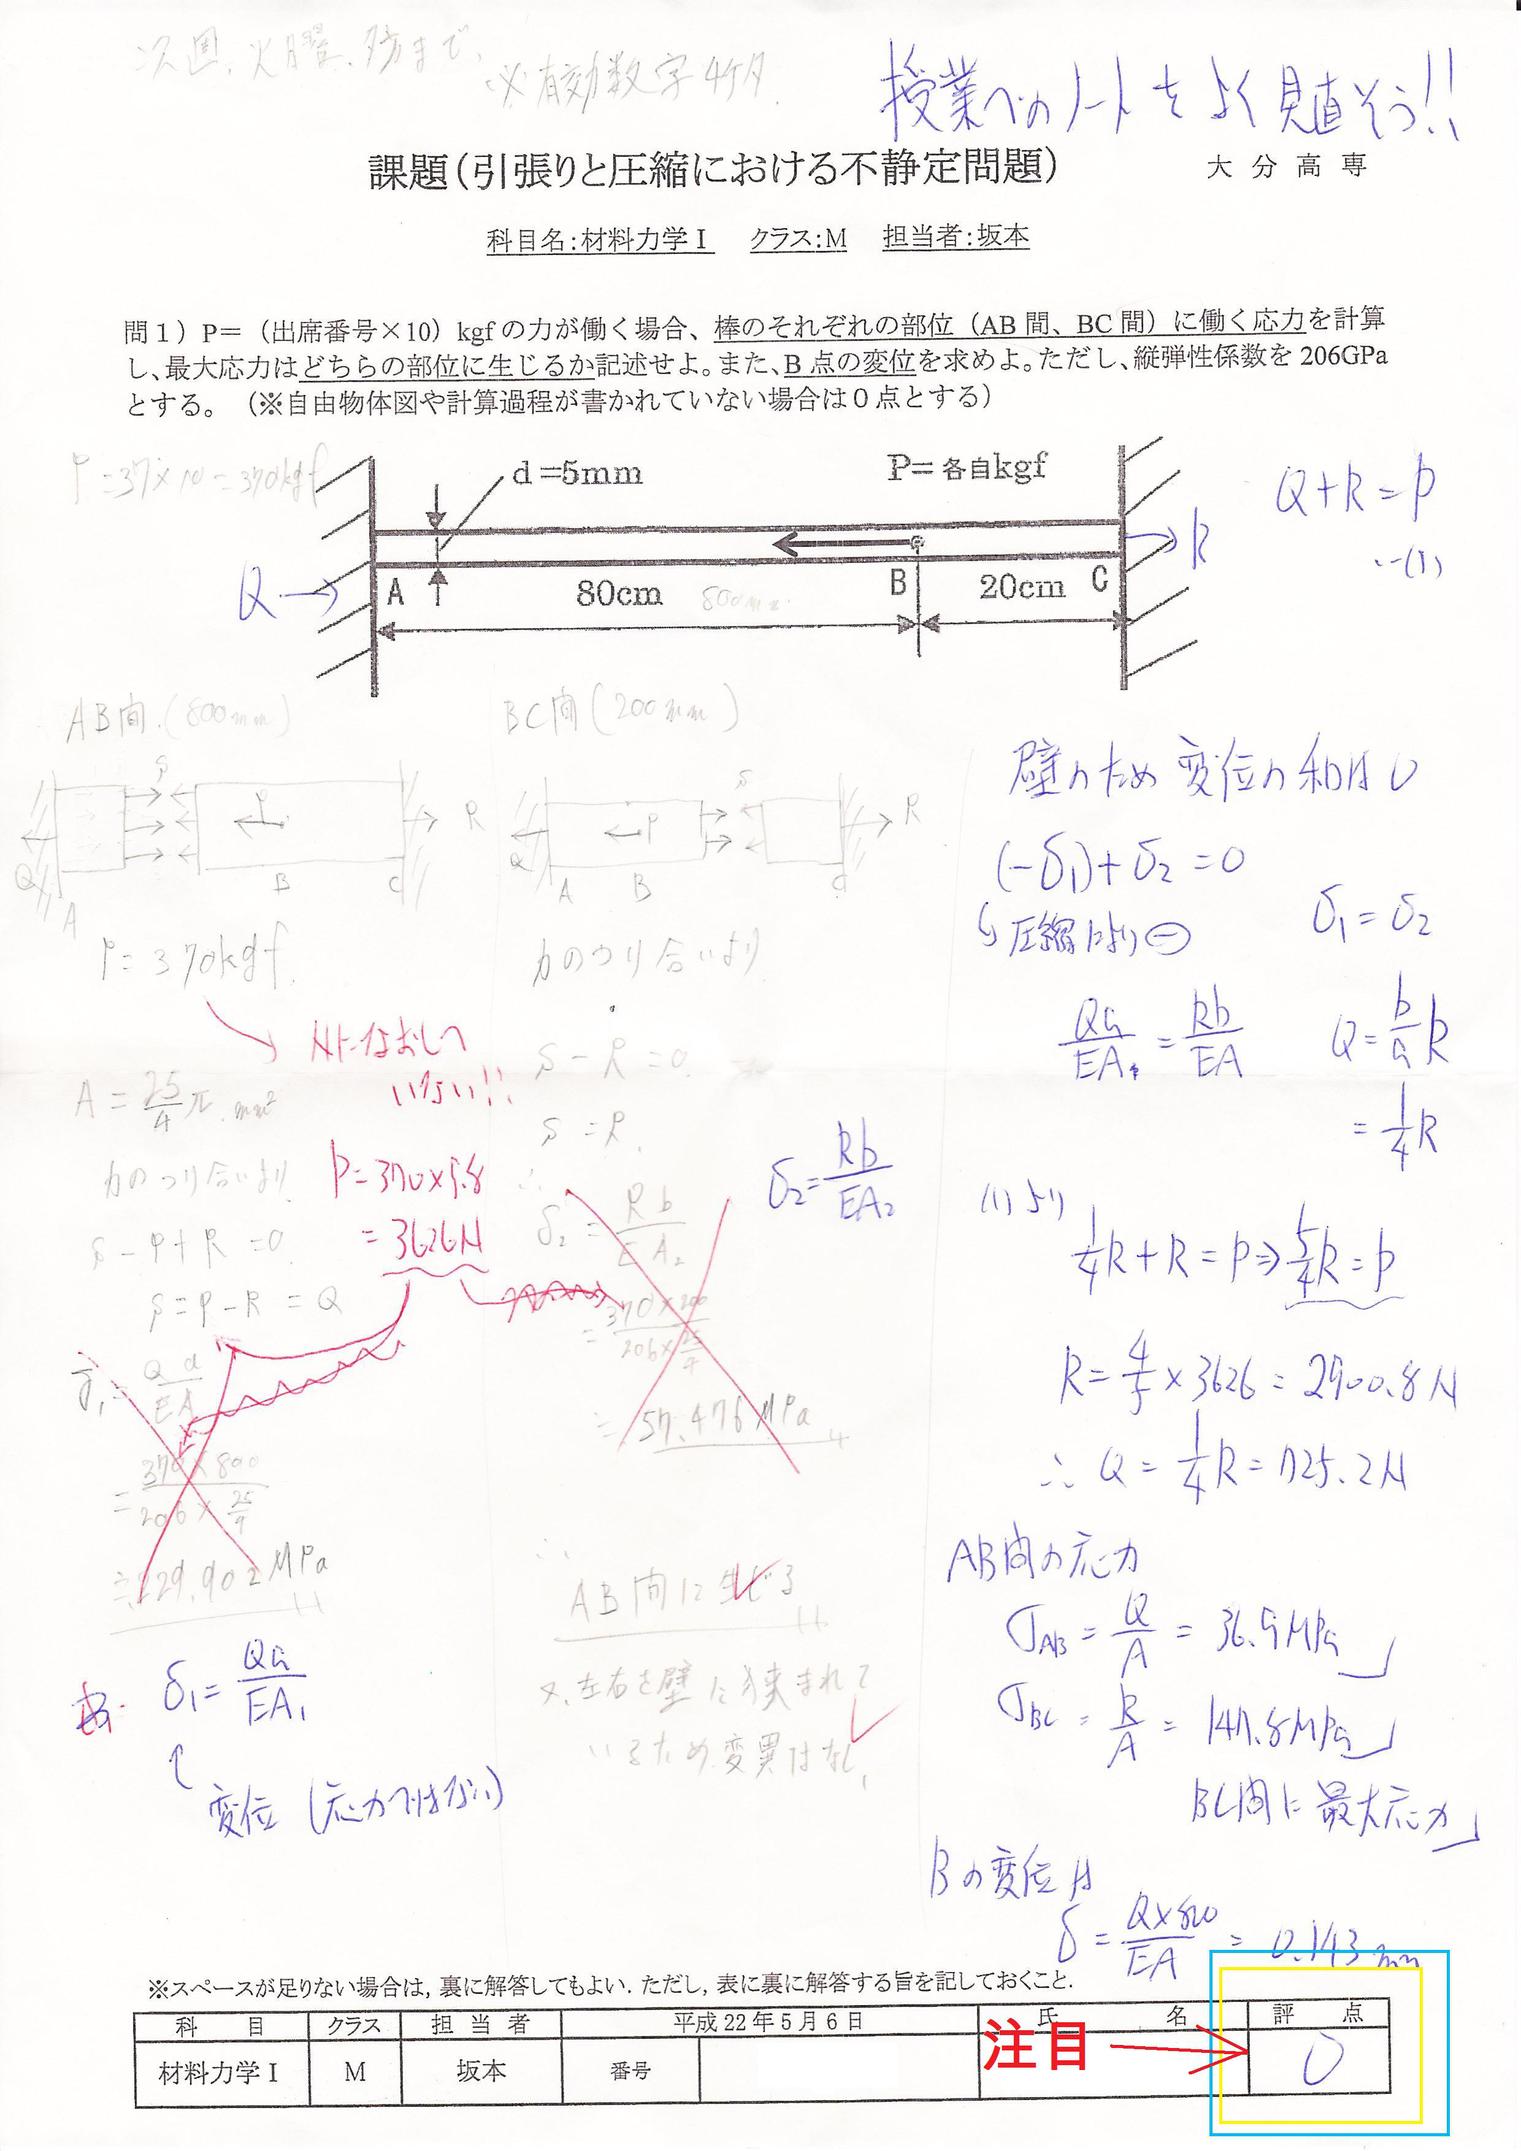 次週、火曜、夕方まで、
※有効数字4ケタ
授業へのノートをよく見直そう!!
課題(引張りと圧縮における不静定問題)
大分高専
科目名:材料力学Ⅰ クラス:M 担当者:坂本
問1)P=(出席番号×10)kgfの力が働く場合、棒のそれぞれの部位(AB間、BC間)に働く応力を計算
し、最大応力はどちらの部位に生じるか記述せよ。また、B点の変位を求めよ。ただし、縦弾性係数を206GPa
とする。(※自由物体図や計算過程が書かれていない場合は0点とする)
P=37×10=370kgf
d=5mm
P=各自kgf
Q+R=P
…(1)
Q
R
A
80cm
800mm
B
20cm
C
AB間(800mm)
S
P
R
Q
A
B
C
P=370kgf
Nになおして
いない!!
A=25/4π mm²
力のつり合いより
P=370×9.8
=3626N
S-P+R=0
S=P-R=Q
δ₁=Qa/EA
=370×800/206×25/4
≒229.902MPa
δ₁=Qa/EA₁
変位(応力ではない)
BC間(200mm)
S
P
R
Q
A
B
C
力のつり合いより
S-R=0
S=R
∴
δ₂=Rb/EA₂
=370×200/206×25/4
=57.476MPa
δ₂=Rb/EA₂
∴
AB間に生じる
又、左右を壁に挟まれて
いるため変異はなし
壁のため変位の和は0
(-δ₁)+δ₂=0
圧縮により⊖
δ₁=δ₂
Qa/EA=Rb/EA
Q=b/aR
=1/4R
(1)より
1/4R+R=P⇒5/4R=P
R=4/5×3626=2900.8N
∴Q=1/4R=725.2N
AB間の応力
σAB=Q/A=36.9MPa
σBC=R/A=147.8MPa
BC間に最大応力
Bの変位は
δ=Q×800/EA=0.143mm
※スペースが足りない場合は,裏に解答してもよい.ただし,表に裏に解答する旨を記しておくこと.
科目 クラス 担当者 平成22年5月6日 氏名 評点
材料力学Ⅰ M 坂本 番号 注目 0